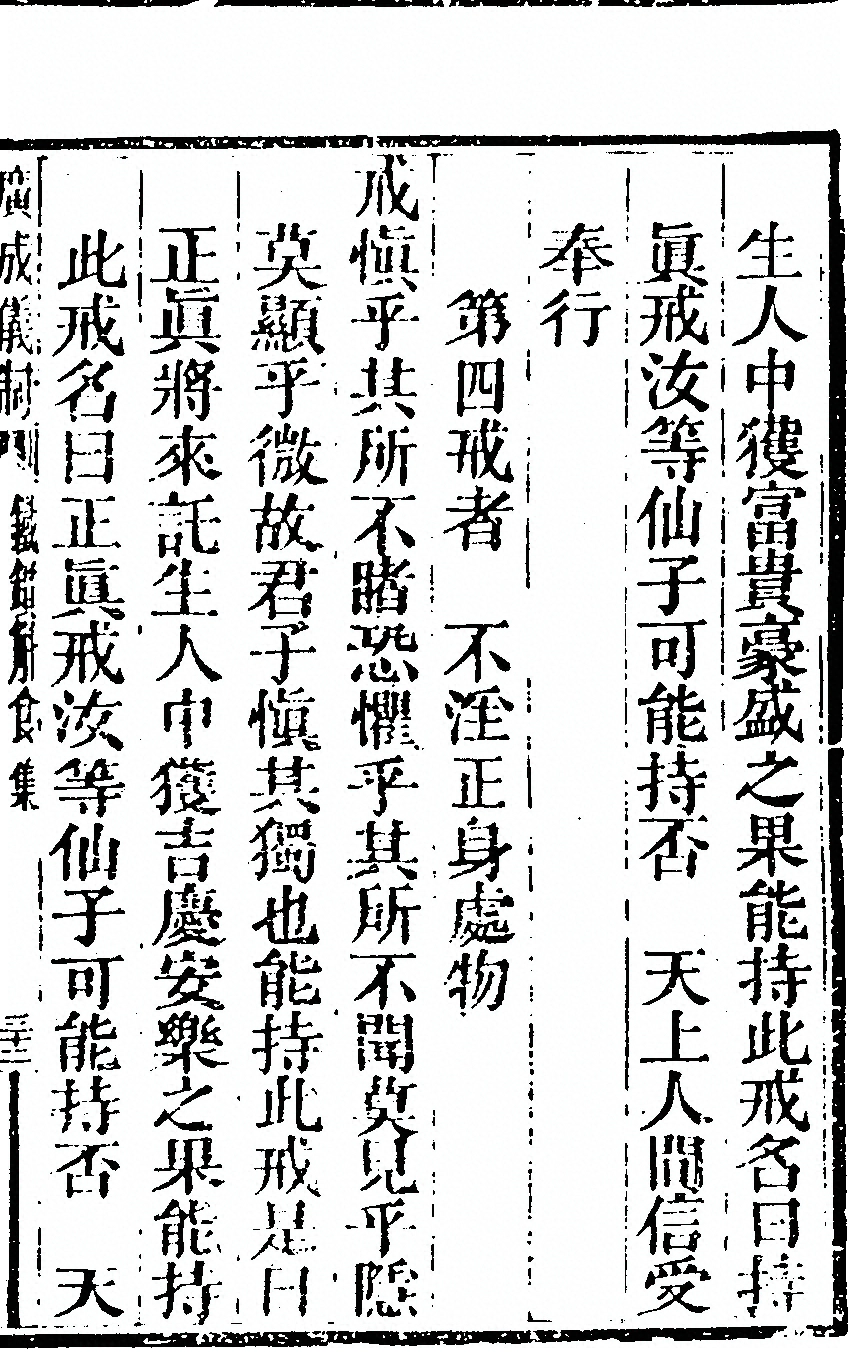 生人中獲富貴豪盛之果能持此戒名曰持
眞戒汝等仙子可能持否　天上人間信受
奉行
第四戒者　不淫正身處物
戒愼乎其所不睹恐懼乎其所不聞莫見乎隱
莫顯乎微故君子愼其獨也能持此戒是曰
正眞將來託生人中獲吉慶安樂之果能持
此戒名曰正眞戒汝等仙子可能持否　天
廣成儀制　鐵鑵斛食集　三十二